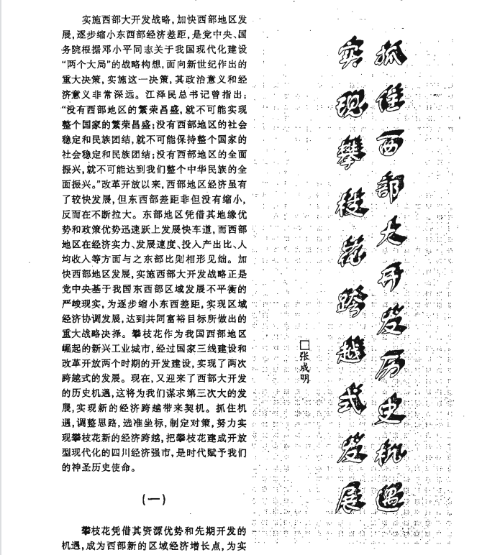 抓住西部大开发历史机遇
实现攀枝花跨越式发展
□张成明
实施西部大开发战略,加快西部地区发
展,逐步缩小东西部经济差距,是党中央、国
务院根据邓小平同志关于我国现代化建设
“两个大局”的战略构想,面向新世纪作出的
重大决策,实施这一决策,其政治意义和经
济意义非常深远。江泽民总书记曾指出:
“没有西部地区的繁荣昌盛,就不可能实现
整个国家的繁荣昌盛;没有西部地区的社会
稳定和民族团结,就不可能保持整个国家的
社会稳定和民族团结;没有西部地区的全面
振兴,就不可能达到我们整个中华民族的全
面振兴。”改革开放以来,西部地区经济虽有
了较快发展,但东西部差距非但没有缩小,
反而在不断拉大。东部地区凭借其地缘优
势和政策优势迅速跃上发展快车道,而西部
地区在经济实力、发展速度、投入产出比、人
均收入等方面与之东部比则相形见绌。加
快西部地区发展,实施西部大开发战略正是
党中央基于我国东西部区域发展不平衡的
严峻现实,为逐步缩小东西差距,实现区域
经济协调发展,达到共同富裕目标所做出的
重大战略决择。攀枝花作为我国西部地区
崛起的新兴工业城市,经过国家三线建设和
改革开放两个时期的开发建设,实现了两次
跨越式的发展。现在,又迎来了西部大开发
的历史机遇,这将为我们谋求第三次大的发
展,实现新的经济跨越带来契机。抓住机
遇,调整思路,选准坐标,制定对策,努力实
现攀枝花新的经济跨越,把攀枝花建成开放
型现代化的四川经济强市,是时代赋予我们
的神圣历史使命。
(一)
攀枝花凭借其资源优势和先期开发的
机遇,成为西部新的区域经济增长点,为实